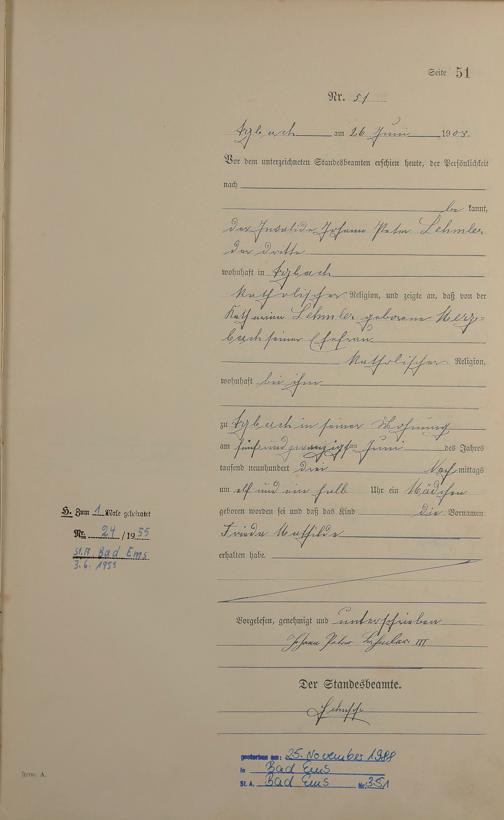 Seite 51
Nr. 51
Arzbach am 26 Juni 1903
Vor dem unterzeichneten Standesbeamten erschien heute, der Persönlichkeit
nach
be kannt,
der Invalide Johann Peter Lehmler
der dritte
wohnhaft in Arzbach
katholischer Religion, und zeigte an, daß von der
Katharina Lehmler geborene Merz-
bach seiner Ehefrau
katholischer Religion,
wohnhaft bei ihm
zu Arzbach in seiner Wohnung
am fünfundzwanzigsten Juni des Jahres
tausend neunhundert drei Nach mittags
um elf und ein halb Uhr ein Mädchen
geboren worden sei und daß das Kind die Vornamen
Frieda Mathilde
erhalten habe.
H. Zum 1 Male geheiratet
Nr. 24 / 19 55
St.A. Bad Ems
3.6. 1955
Vorgelesen, genehmigt und unterschrieben
Johann Peter Lehmler III
Der Standesbeamte.
gestorben am: 25. November 1988
in Bad Ems
St. A. Bad Ems Nr. 351
Form. A.